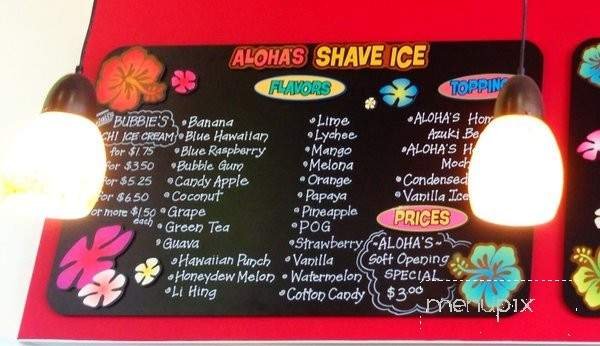 ALOHA'S SHAVE ICE
FLAVORS
TOPPING
BUBBIE'S
CHI ICE CREAM
for $1.75
for $3.50
for $5.25
$6.50
or more $1.50
each
Banana
Blue Hawaiian
Blue Raspberry
Bubble Gum
Candy Apple
Coconut
Grape
Green Tea
Guava
Hawaiian Punch
Honeydew Melon
Li Hing
Lime
Lychee
Mango
Melona
Orange
Papaya
Pineapple
POG
Strawberry
Vanilla
Watermelon
Cotton Candy
ALOHA'S Hom
Azuki Be
ALOHA'S H
Moch
Condensed
Vanilla Ice
PRICES
~ALOHA'S~
Soft Opening
SPECIAL
$3.00
menupix